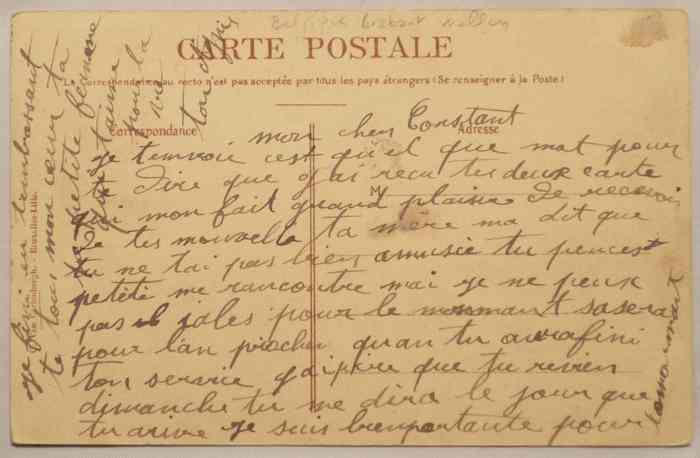 Belgique Brabant wallon
CARTE POSTALE
La Correspondance au recto n'est pas acceptée par tous les pays étrangers (Se renseigner à la Poste)
Correspondance
Adresse
M
mon cher Constant
je tenvoie cest quel que mot pour
te dire que jai recu tes deux carte
qui mon fait grand plaisir de recevoir
de tes nouvelle ta mère ma dit que
tu ne tai pas bien amusée tu pences
petète me rancontre mai je ne peux
pas allez pour le monmant sa sera
pour lan prochen quan tu aura fini
ton service jaispère que tu revien
dimanche tu me dira le jour que
tu arive je suis bien portante pour
je fini en tembrassant
de tous mon cœur ta
petite femme
qui taime
pour la
vie
ton